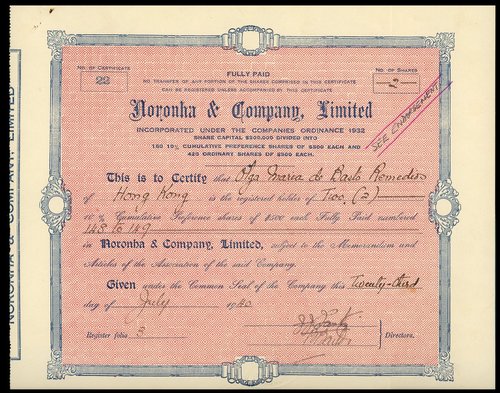 No. of Certificate
22
No. of Shares
FULLY PAID
NO TRANSFER OF ANY PORTION OF THE SHARES COMPRISED IN THIS CERTIFICATE
CAN BE REGISTERED UNLESS ACCOMPANIED BY THIS CERTIFICATE
Noronha & Company, Limited
INCORPORATED UNDER THE COMPANIES ORDINANCE 1932
SHARE CAPITAL $300,000 DIVIDED INTO
180 10% CUMULATIVE PREFERENCE SHARES OF $500 EACH AND
420 ORDINARY SHARES OF $500 EACH.
SEE ENDORSEMENT
This is to Certify that Olga Maria de Basto Remedios
of Hong Kong is the registered holder of Two, (2)
10% Cumulative Preference shares of $500 each Fully Paid numbered
148 to 149
in Noronha & Company, Limited, subject to the Memorandum and
Articles of the Association of the said Company.
Given under the Common Seal of the Company this Twenty-third
day of July 1940
Register folio 3
Directors.
NORONHA & COMPANY, LIMITED